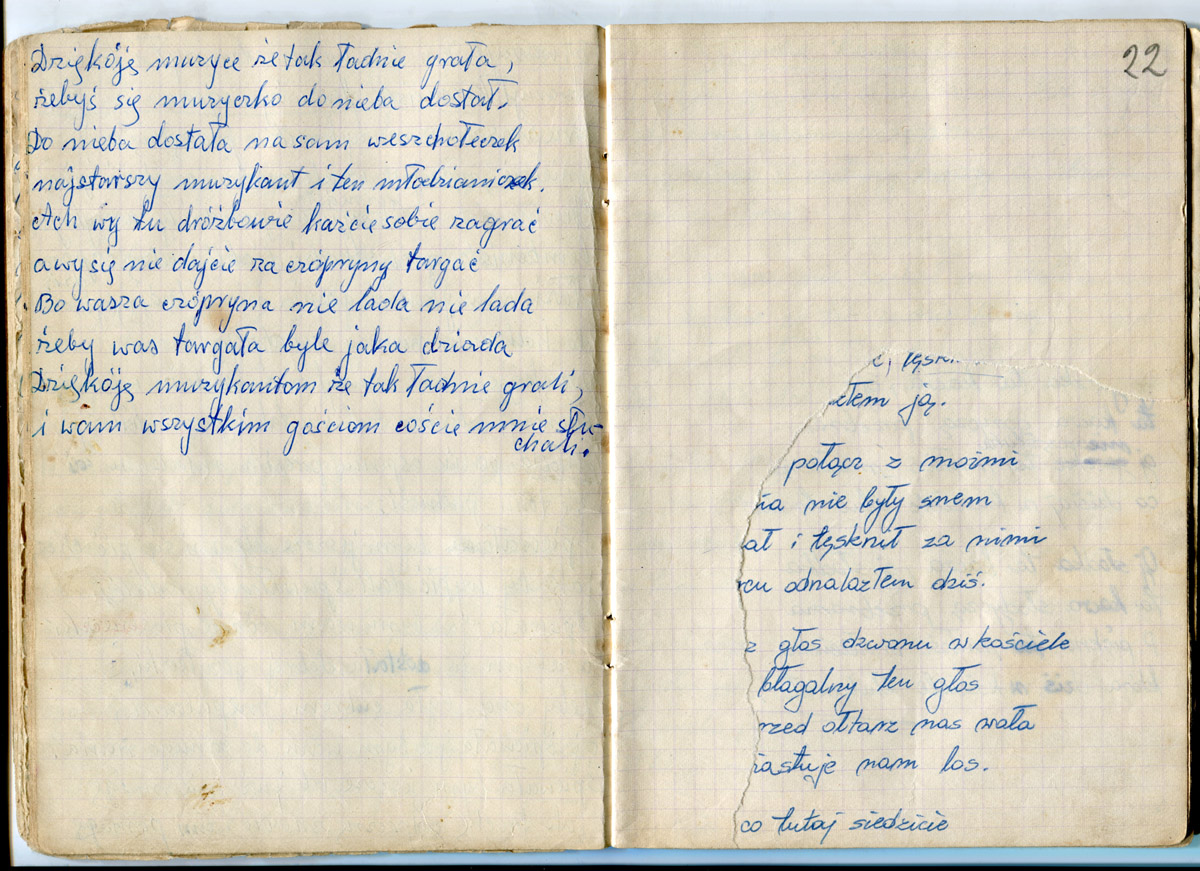 Dziękóję muzyce że tak ładnie grała,
żebyś się muzyczko do nieba dostał.
Do nieba dostała na sam weszchołeczek
najstarszy muzykant i ten młodzianiczek.
Ach wy tu dróżbowie każcie sobie zagrać
a wy się nie dajcie za czópryny targać
Bo wasza czópryna nie lada nie lada
żeby was targała byle jaka dziada
Dziękóję muzykantom że tak ładnie grali,
i wam wszystkim gościom coście mnie słu-
chali.
22
ją.
połącz z moimi
nie były snem
i tęsknił za nimi
odnalazłem dziś.
głos dzwonu w kościele
błagalny ten głos
ołtarz nas woła
nam los.
co tutaj siedzicie